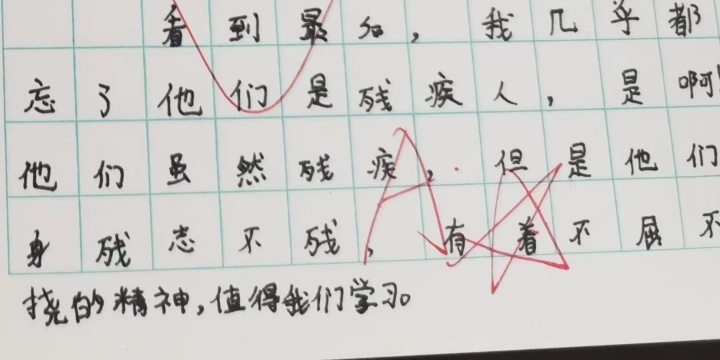 看到最后，我几乎都
忘了他们是残疾人，是啊！
他们虽然残疾，但是他们
身残志不残，有着不屈不
挠的精神，值得我们学习。
A